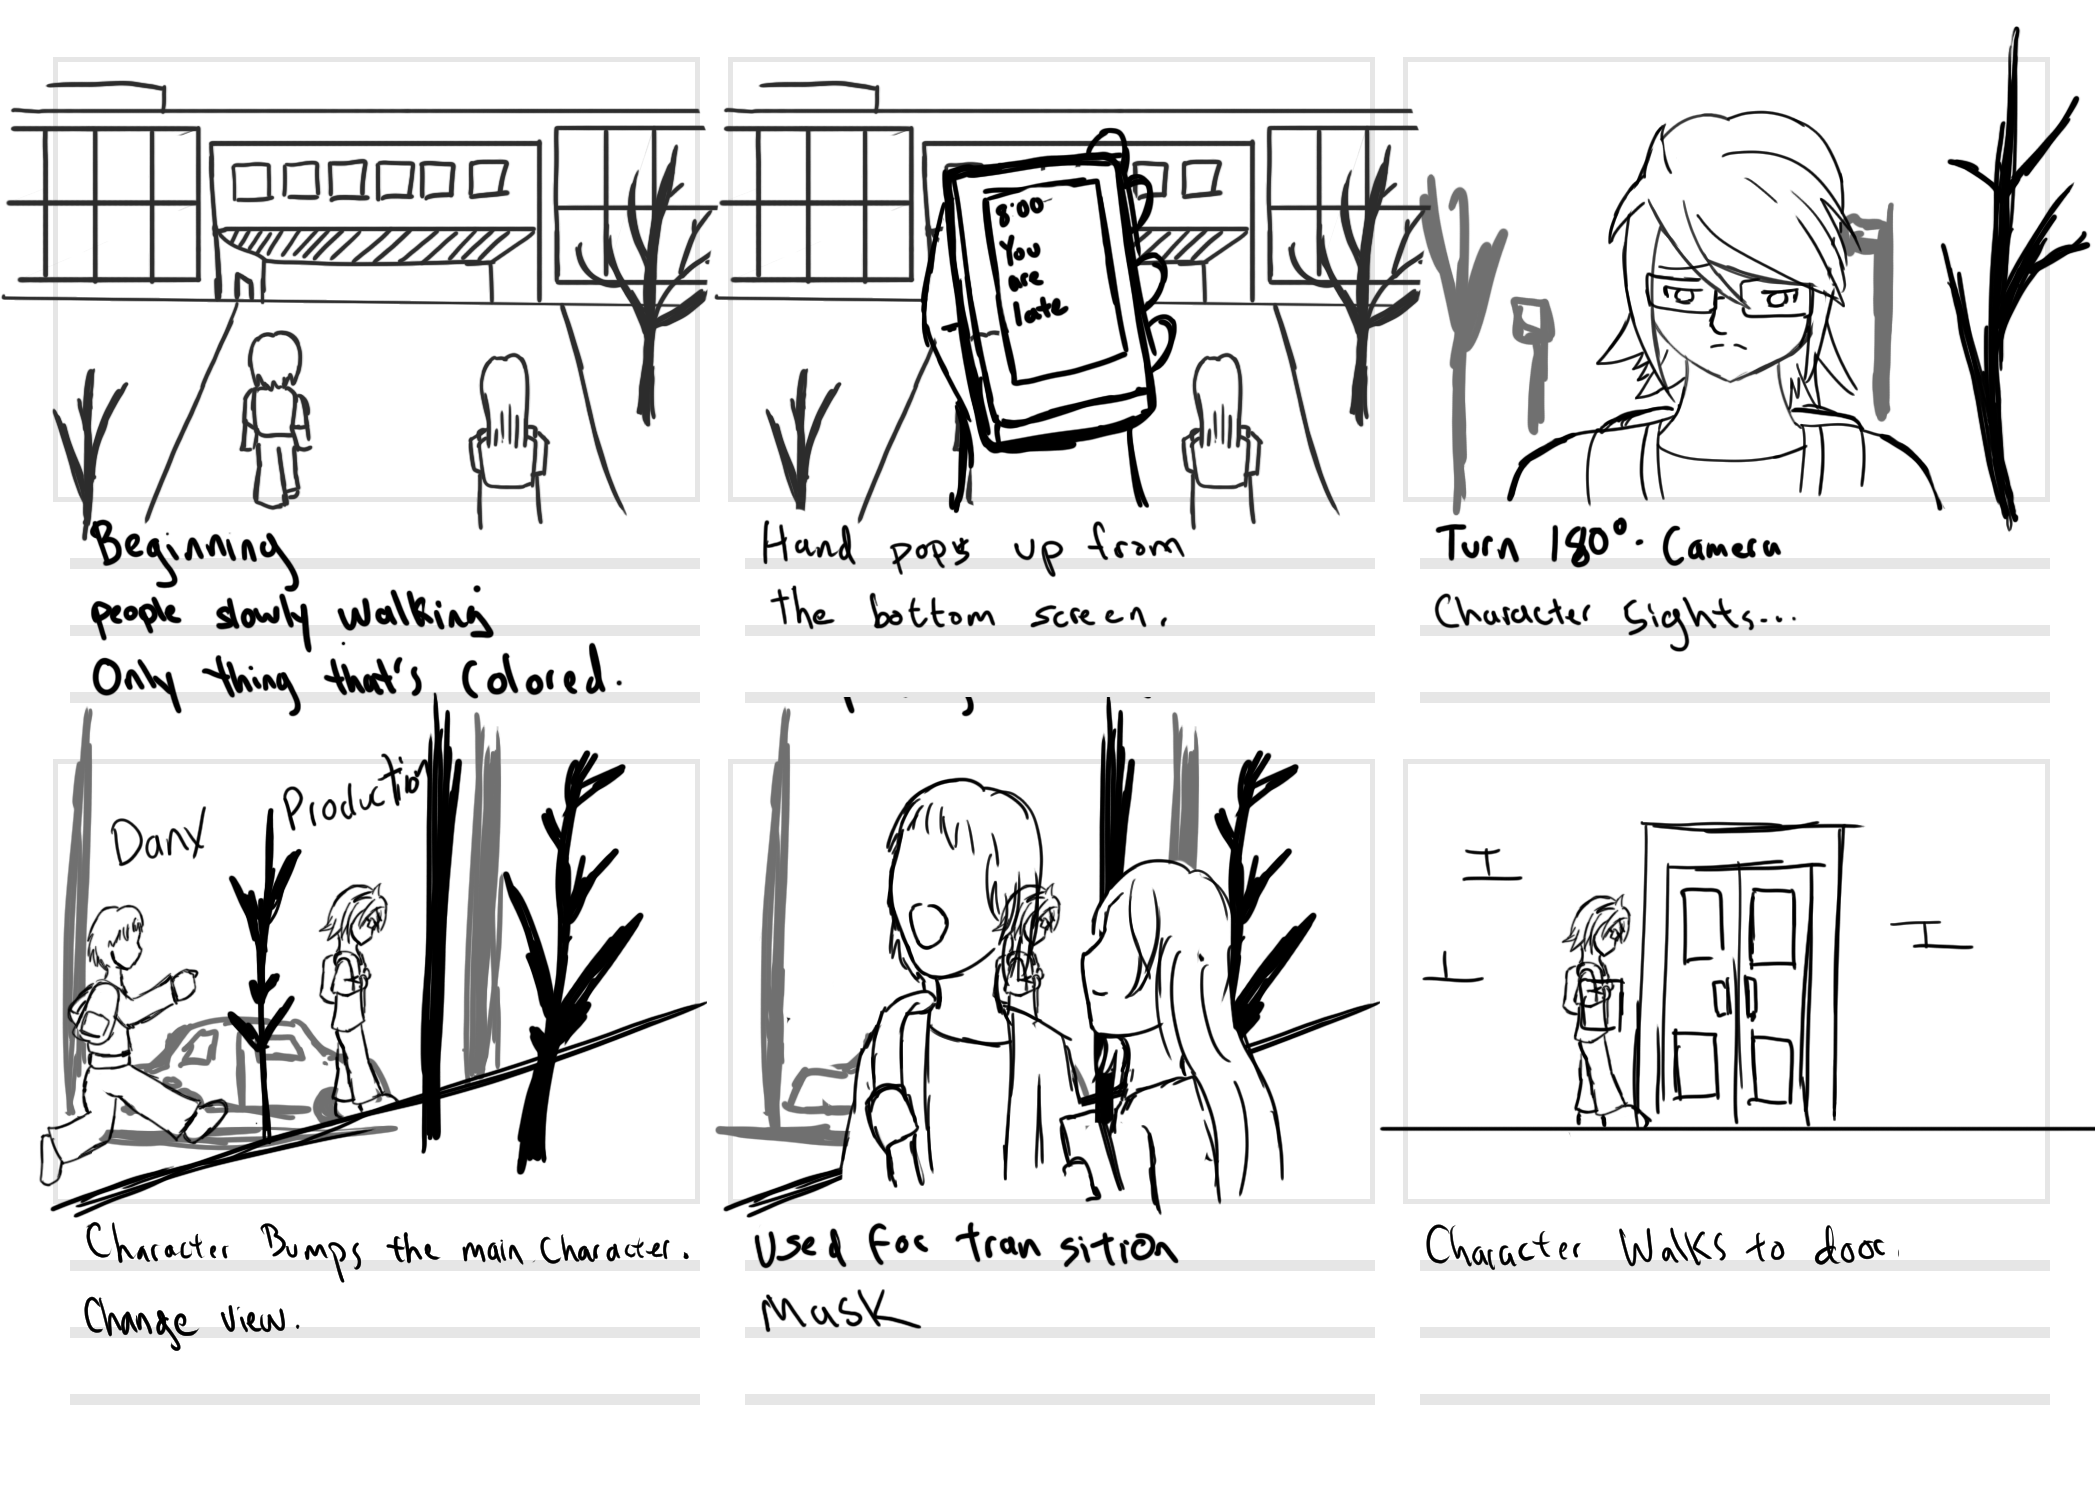 Beginning
people slowly walking
Only thing that's Colored.
8:00
You
are
late
Hand pops up from
the bottom screen.
Turn 180° Camera
Character Sights...
Danx
Production
Character Bumps the main Character.
Change view.
Used For transition
Mask
Character Walks to door.